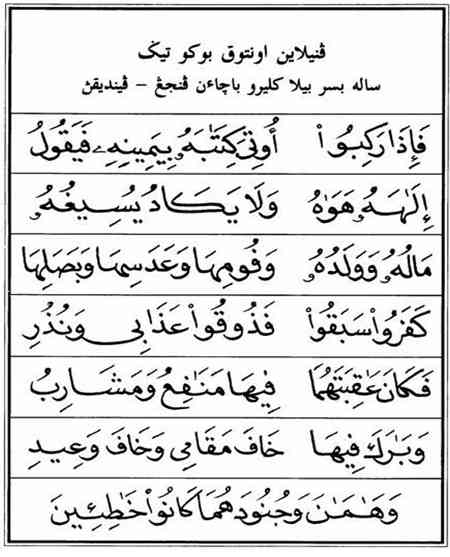 ڤنيلاين اونتوق بوكو تيݢ
ساله بسر بيلا كليرو باچاءن ڤنجڠ – ڤينديقڽ
فَإِذَا رَكِبُوا۟ أُوتِيَ كِتَـٰبَهُۥ بِيَمِينِهِۦ فَيَقُولُ
إِلَـٰهَهُۥ هَوَىٰهُ وَلَا يَكَادُ يُسِيغُهُۥ
مَالُهُۥ وَوَلَدُهُۥ وَفُومِهَا وَعَدَسِهَا وَبَصَلِهَا
كَفَرُوا۟ سَبَقُوا۟ فَذُوقُوا۟ عَذَابِى وَنُذُرِ
فَكَانَ عَـٰقِبَتَهُمَا فِيهَا مَنَـٰفِعُ وَمَشَارِبُ
وَبَـٰرَكَ فِيهَا خَافَ مَقَامِى وَخَافَ وَعِيدِ
وَهَـٰمَـٰنَ وَجُنُودَهُمَا كَانُوا۟ خَـٰطِـِٔينَ